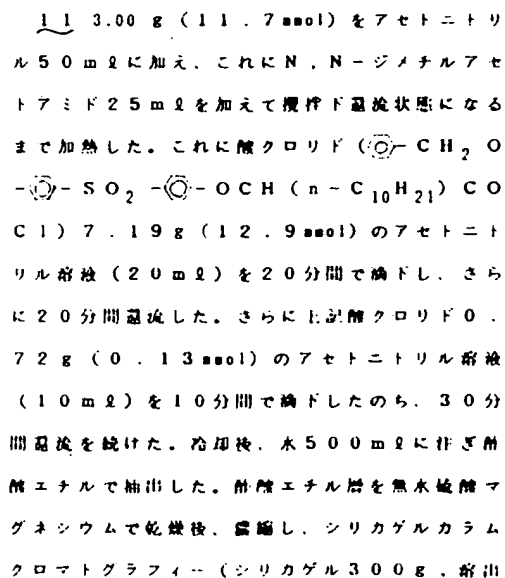 11 3.00 g (11.7mmol) をアセトニトリ
ル50mℓに加え、これにN,N-ジメチルアセ
トアミド25mℓを加えて攪拌下還流状態になる
まで加熱した。これに酸クロリド (-CH2O
--SO2--OCH(n-C10H21)CO
Cl) 7.19g (12.9mmol) のアセトニト
リル溶液 (20mℓ) を20分間で滴下し、さら
に20分間還流した。さらに上記酸クロリド0.
72g (0.13mmol) のアセトニトリル溶液
(10mℓ) を10分間で滴下したのち、30分
間還流を続けた。冷却後、水500mℓに注ぎ酢
酸エチルで抽出した。酢酸エチル層を無水硫酸マ
グネシウムで乾燥後、濃縮し、シリカゲルカラム
クロマトグラフィー (シリカゲル300g,溶出